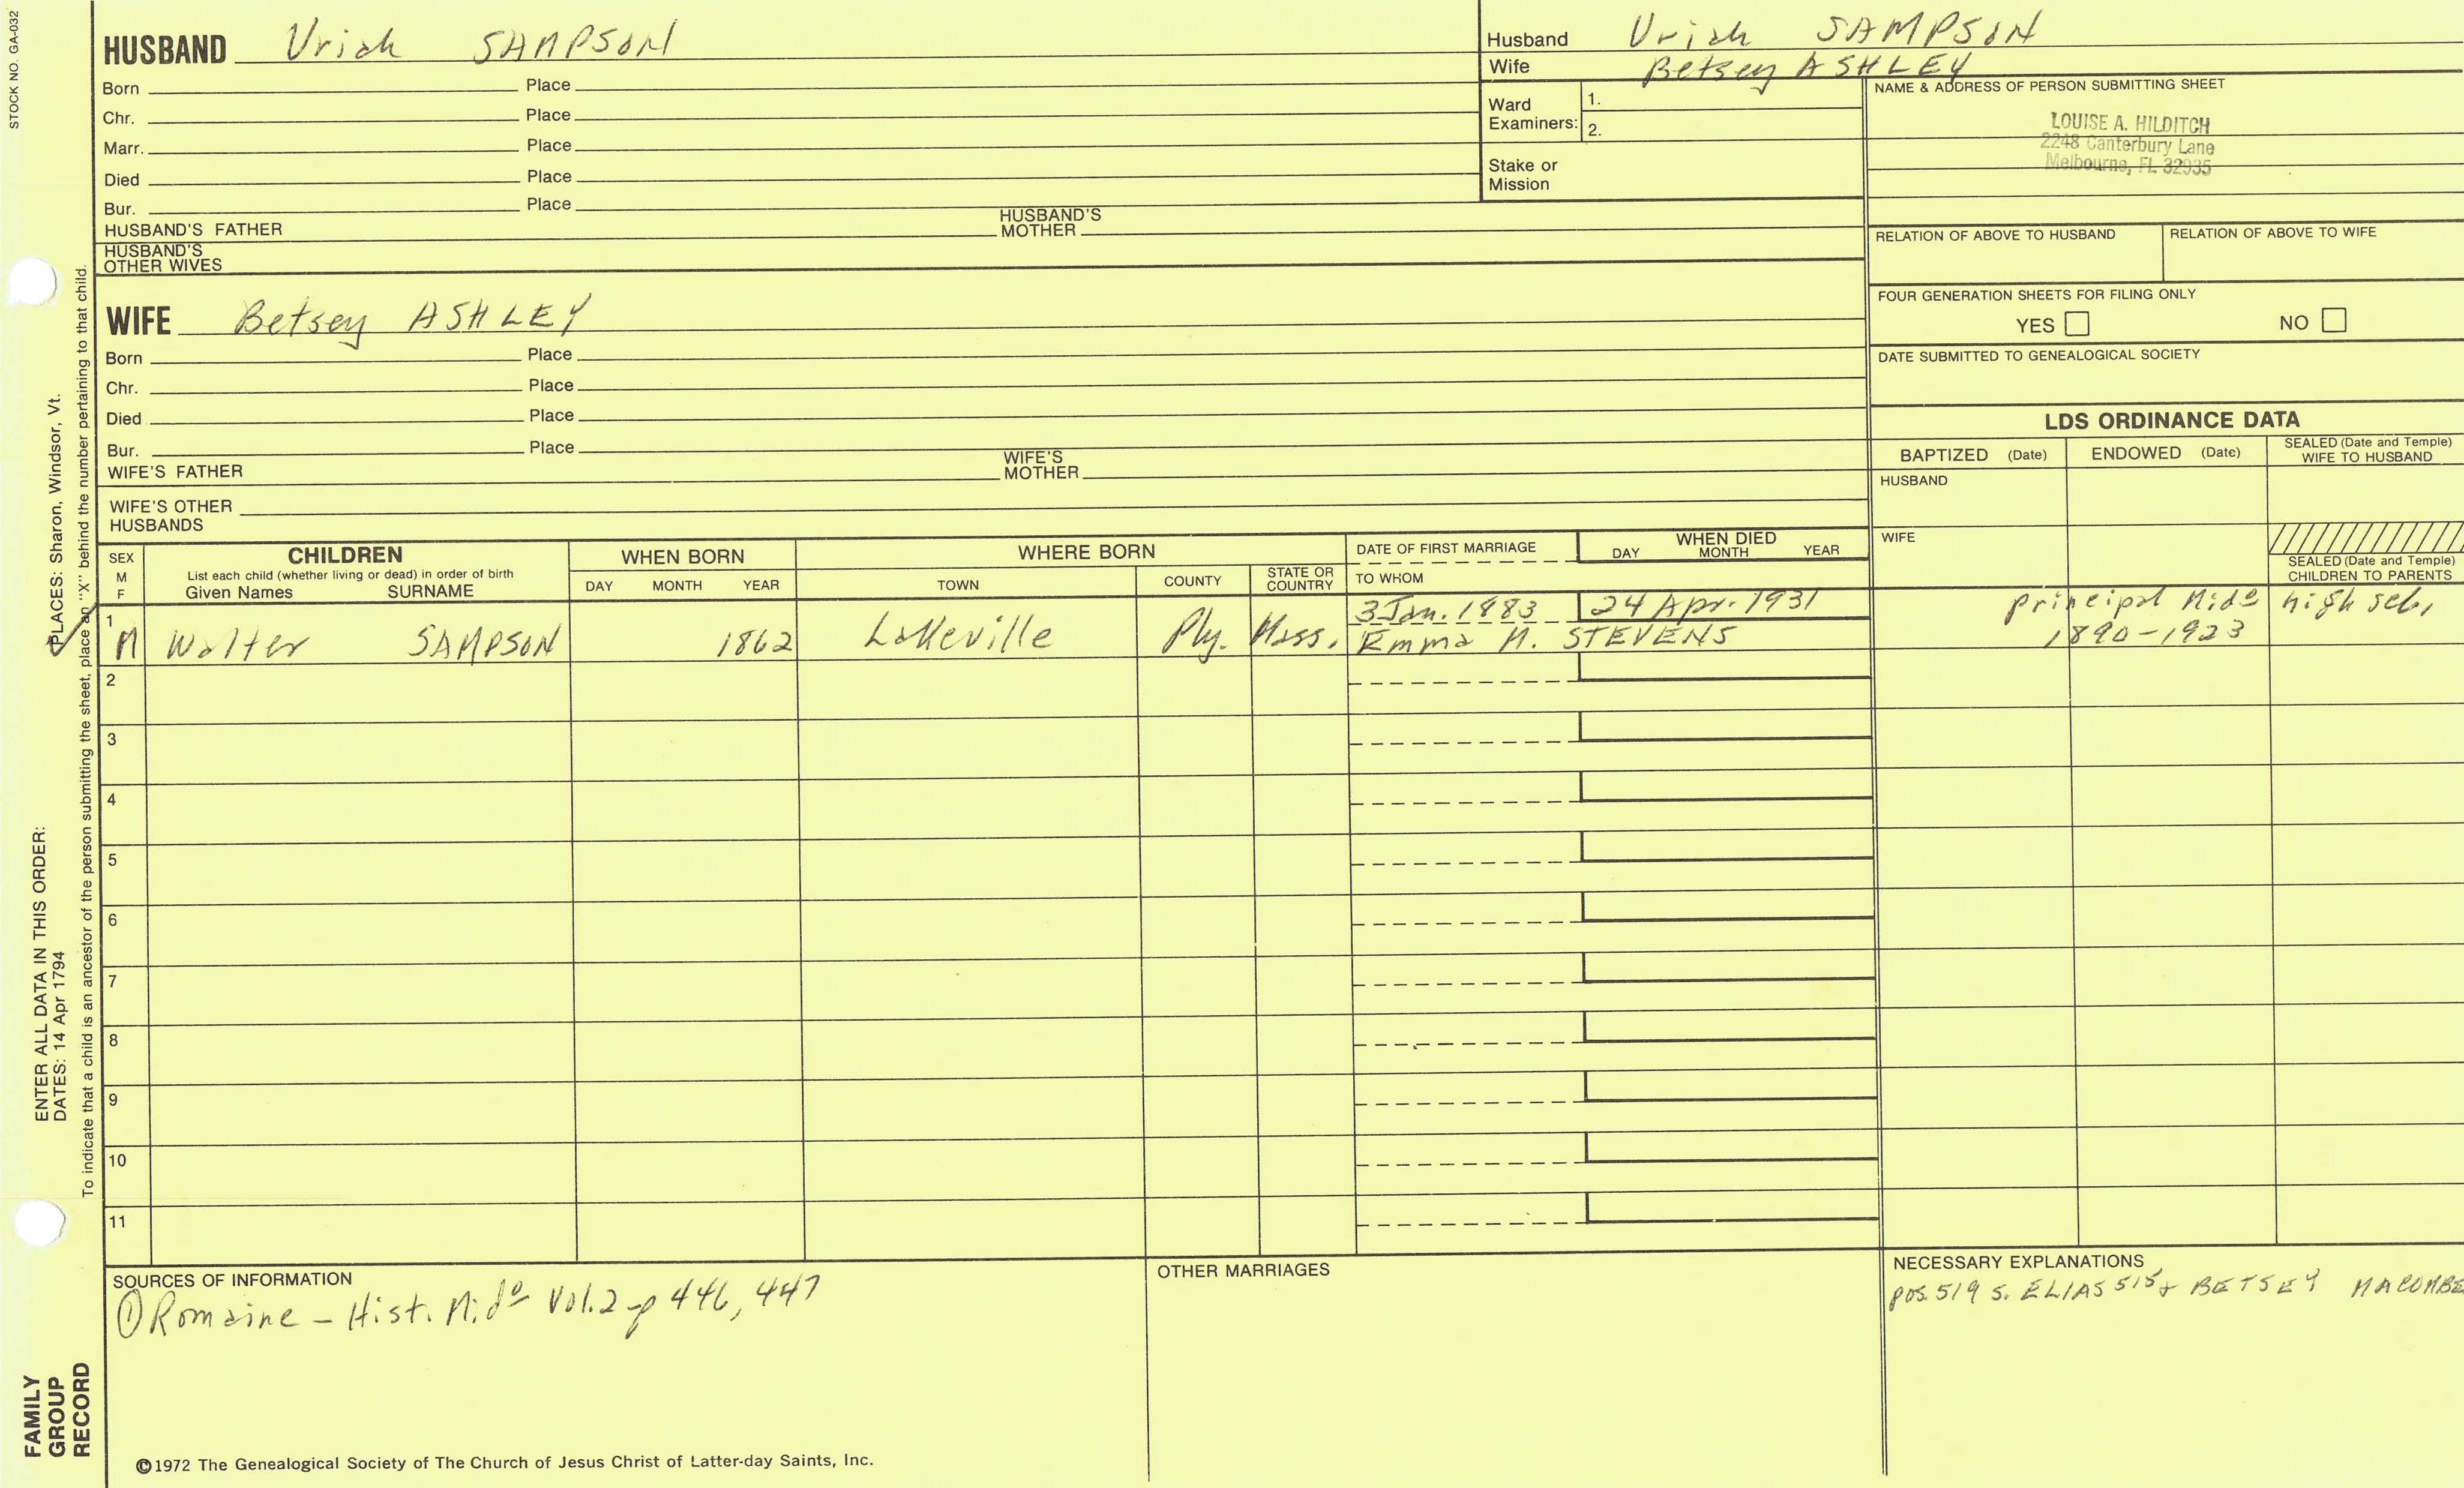 STOCK NO. GA-032
HUSBAND Uriah SAMPSON
Born Place
Chr. Place
Marr. Place
Died Place
Bur. Place
HUSBAND'S FATHER HUSBAND'S MOTHER
HUSBAND'S OTHER WIVES
Husband Uriah SAMPSON
Wife Betsey ASHLEY
Ward Examiners: 1.
2.
Stake or Mission
NAME & ADDRESS OF PERSON SUBMITTING SHEET
LOUISE A. HILDITCH
2248 Canterbury Lane
Melbourne, FL 32935
RELATION OF ABOVE TO HUSBAND RELATION OF ABOVE TO WIFE
FOUR GENERATION SHEETS FOR FILING ONLY
YES NO
DATE SUBMITTED TO GENEALOGICAL SOCIETY
WIFE Betsey ASHLEY
Born Place
Chr. Place
Died Place
Bur. Place
WIFE'S FATHER WIFE'S MOTHER
WIFE'S OTHER HUSBANDS
LDS ORDINANCE DATA
BAPTIZED (Date) ENDOWED (Date) SEALED (Date and Temple) WIFE TO HUSBAND
HUSBAND
WIFE
SEALED (Date and Temple) CHILDREN TO PARENTS
SEX M F
CHILDREN
List each child (whether living or dead) in order of birth
Given Names SURNAME
WHEN BORN
DAY MONTH YEAR
WHERE BORN
TOWN COUNTY STATE OR COUNTRY
DATE OF FIRST MARRIAGE
TO WHOM
WHEN DIED
DAY MONTH YEAR
1 3 Jan. 1883 24 Apr. 1931 principal Mido high sch,
M Walter SAMPSON 1862 Lakeville Ply. Mass. Emma M. STEVENS 1890-1923
2
3
4
5
6
7
8
9
10
11
SOURCES OF INFORMATION
① Romaine - Hist. Mido Vol.2 - p 446, 447
OTHER MARRIAGES
NECESSARY EXPLANATIONS
pos. 519 s. ELIAS 515 + BETSEY MACOMBE
©1972 The Genealogical Society of The Church of Jesus Christ of Latter-day Saints, Inc.
FAMILY GROUP RECORD
ENTER ALL DATA IN THIS ORDER:
DATES: 14 Apr 1794
PLACES: Sharon, Windsor, Vt.
To indicate that a child is an ancestor of the person submitting the sheet, place an "X" behind the number pertaining to that child.